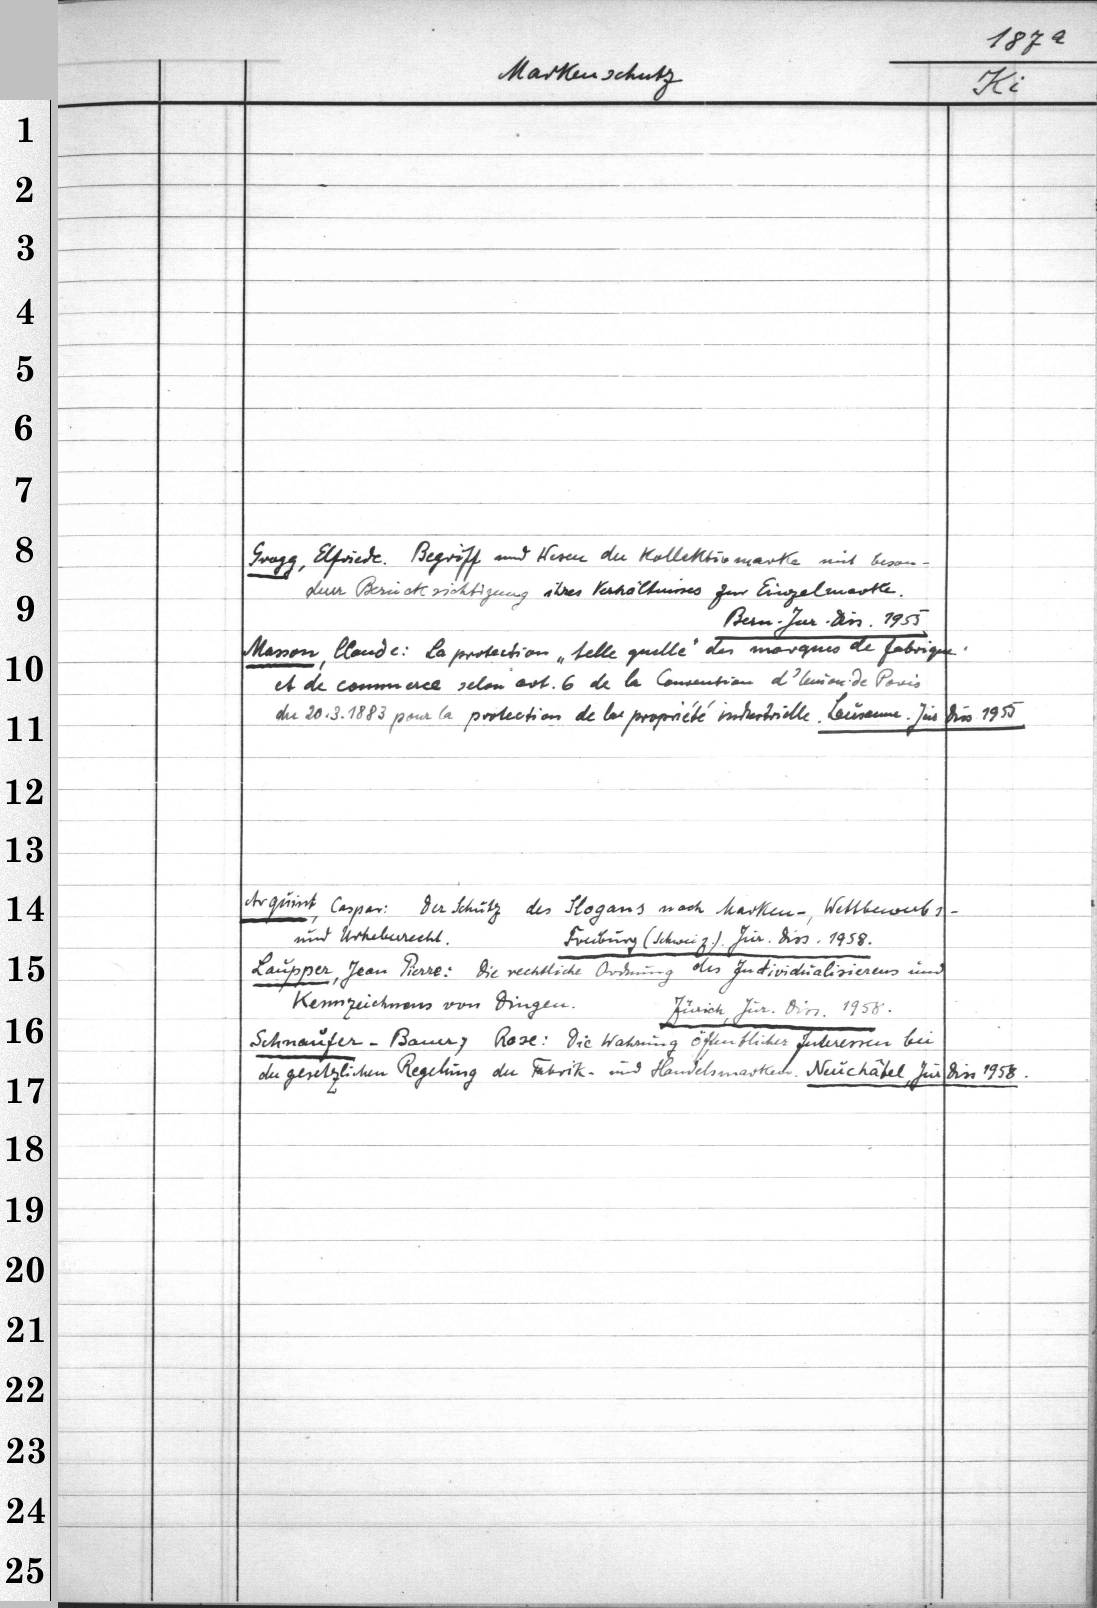 187a
Markenschutz
Ki
1
2
3
4
5
6
7
8
Grogg, Elfriede. Begriff und Wesen der Kollektivmarke mit beson-
derer Berücksichtigung ihres Verhältnisses zur Einzelmarke.
9
Bern. Jur. Diss. 1955
Masson, Claude: La protection „telle quelle" des marques de fabrique
10
et de commerce selon art. 6 de la Convention d'Union de Paris
du 20.3.1883 pour la protection de la propriété industrielle. Lausanne. Jur Diss 1955
11
12
13
14
Arquint, Caspar: Der Schutz des Slogans nach Marken-, Wettbewerbs-
und Urheberrecht. Freiburg (Schweiz). Jur. Diss. 1958.
15
Laupper, Jean Pierre: Die rechtliche Ordnung des Individualisierens und
Kennzeichnens von Dingen. Zürich, Jur. Diss. 1958.
16
Schnaufer-Bauer, Rose: Die Wahrung öffentlicher Interessen bei
der gesetzlichen Regelung der Fabrik- und Handelsmarken. Neuchâtel, Jur Diss 1958.
17
18
19
20
21
22
23
24
25